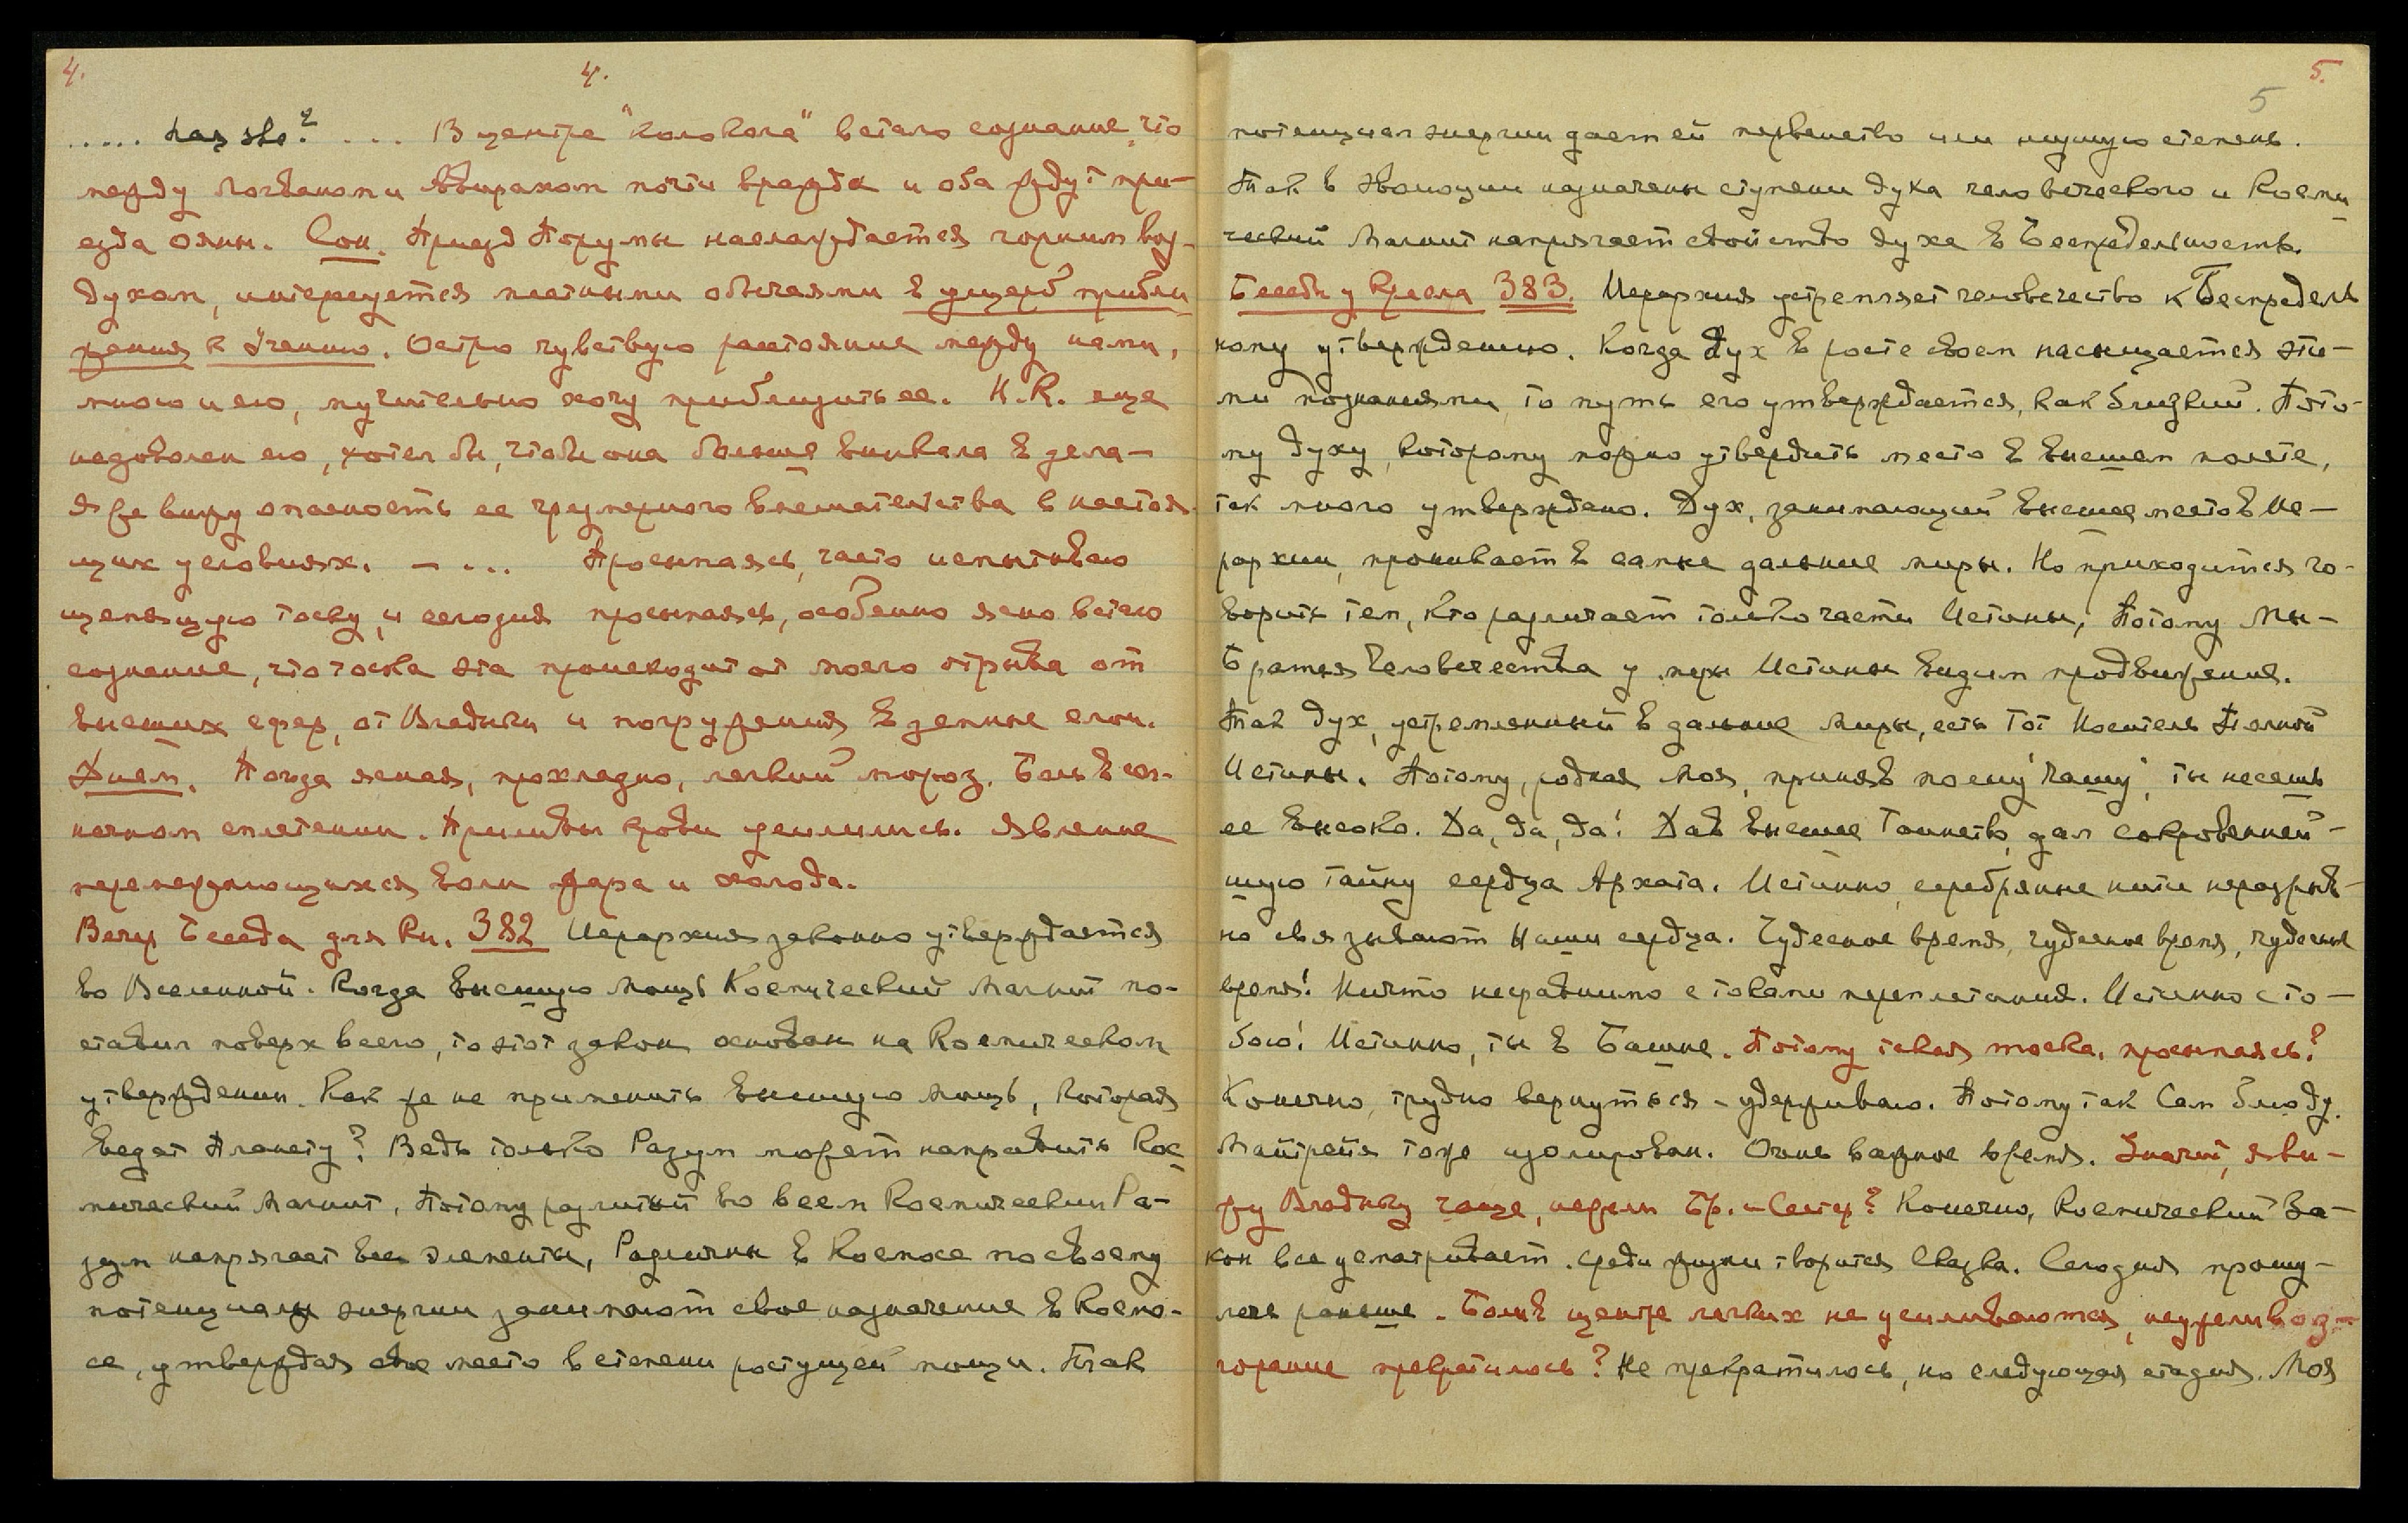 4. 4.
..... наз sho? .... В центре "колокола" встало сознание, что
между Логваном и Авираном почти вражда и оба ждут при-
езда Ояны. Сон. Приезд Порумы наслаждается горным воз-
духом, интересуется местными обычаями в ущерб прибли
жения к Учению. Остро чувствую расстояние между нами,
мною и ею, мучительно хочу приблизить ее. Н.К. еще
недоволен ею, хотел бы, чтобы она больше вникала в дела –
я же вижу опасность ее чрезмерного вмешательства в настоя
щих условиях. – ... Просыпаясь, часто испытываю
щемящую тоску, и сегодня просыпаясь, особенно ясно встало
сознание, что тоска эта происходит от моего отрыва от
высших сфер, от Владыки и погружения в земные слои.
Днем. Погода ясная, прохладно, легкий мороз. Боль в сол-
нечном сплетении. Приливы крови усилились. Явление
перемежающихся волн жара и холода.
Вечер Беседа для Кн. 382 Иерархия законно утверждается
во Вселенной. Когда высшую мощь Космический Магнит по-
ставил поверх всего, то этот закон основан на Космическом
утверждении. Как же не применить высшую мощь, которая
ведет планету? Ведь только Разум может направить Кос
мический Магнит, Потому разлитый во всем Космический Ра-
зум напрягает все элементы, Различны в Космосе по своему
потенциалу энергии занимают свое назначение в Космо-
се, утверждая свое место в степени растущей мощи. Так
5. 5
потенциал энергии дает ей первенство или низшую степень.
Так в эволюции назначены ступени духа человеческого и Косми
ческий Магнит напрягает свойство духа в Беспредельность.
Беседы у Кресла 383. Иерархия устремляет человечество к Беспредель
ному утверждению. Когда Дух в росте своем насыщается эти-
ми познаниями, то путь его утверждается, как близкий. Пото-
му духу, которому можно утвердить место в высшем полете,
так много утверждено. Дух, занимающий высшее место в Ие-
рархии, проникает в самые дальние миры. Но приходится го-
ворить тем, кто различает только части Истины, Потому Мы-
Братья Человечества у меры Истины видим продвижения.
Так дух, устремленный в дальние Миры, есть Тот Носитель Полной
Истины. Потому, родная Моя, приняв мою "Чашу", ты несешь
ее высоко. Да, да, да! Дав высшее Таинство, дал сокровенней-
шую тайну сердца Архата. Истинно, серебряные нити неразрыв-
но связывают Наши сердца. Чудесное время, чудесное время, чудесное
время! Ничто несравнимо с токами переплетения. Истинно с то-
бою! Истинно, ты в Башне. Потому такая тоска, просыпаясь?
Конечно, трудно вернуться – удерживаю. Потому так Сам блюду.
Майтрейя тоже изолирован. Очень важное время. Значит, я ви-
жу Владыку чаще, нежели Бр. и Сестер? Конечно, Космический За-
кон все усматривает. Среди жизни творится Сказка. Сегодня прошу –
лечь раньше. Боли в центре легких не усиливаются, неужели воз-
горение прекратилось? Не прекратилось, но следующая стадия. Моя